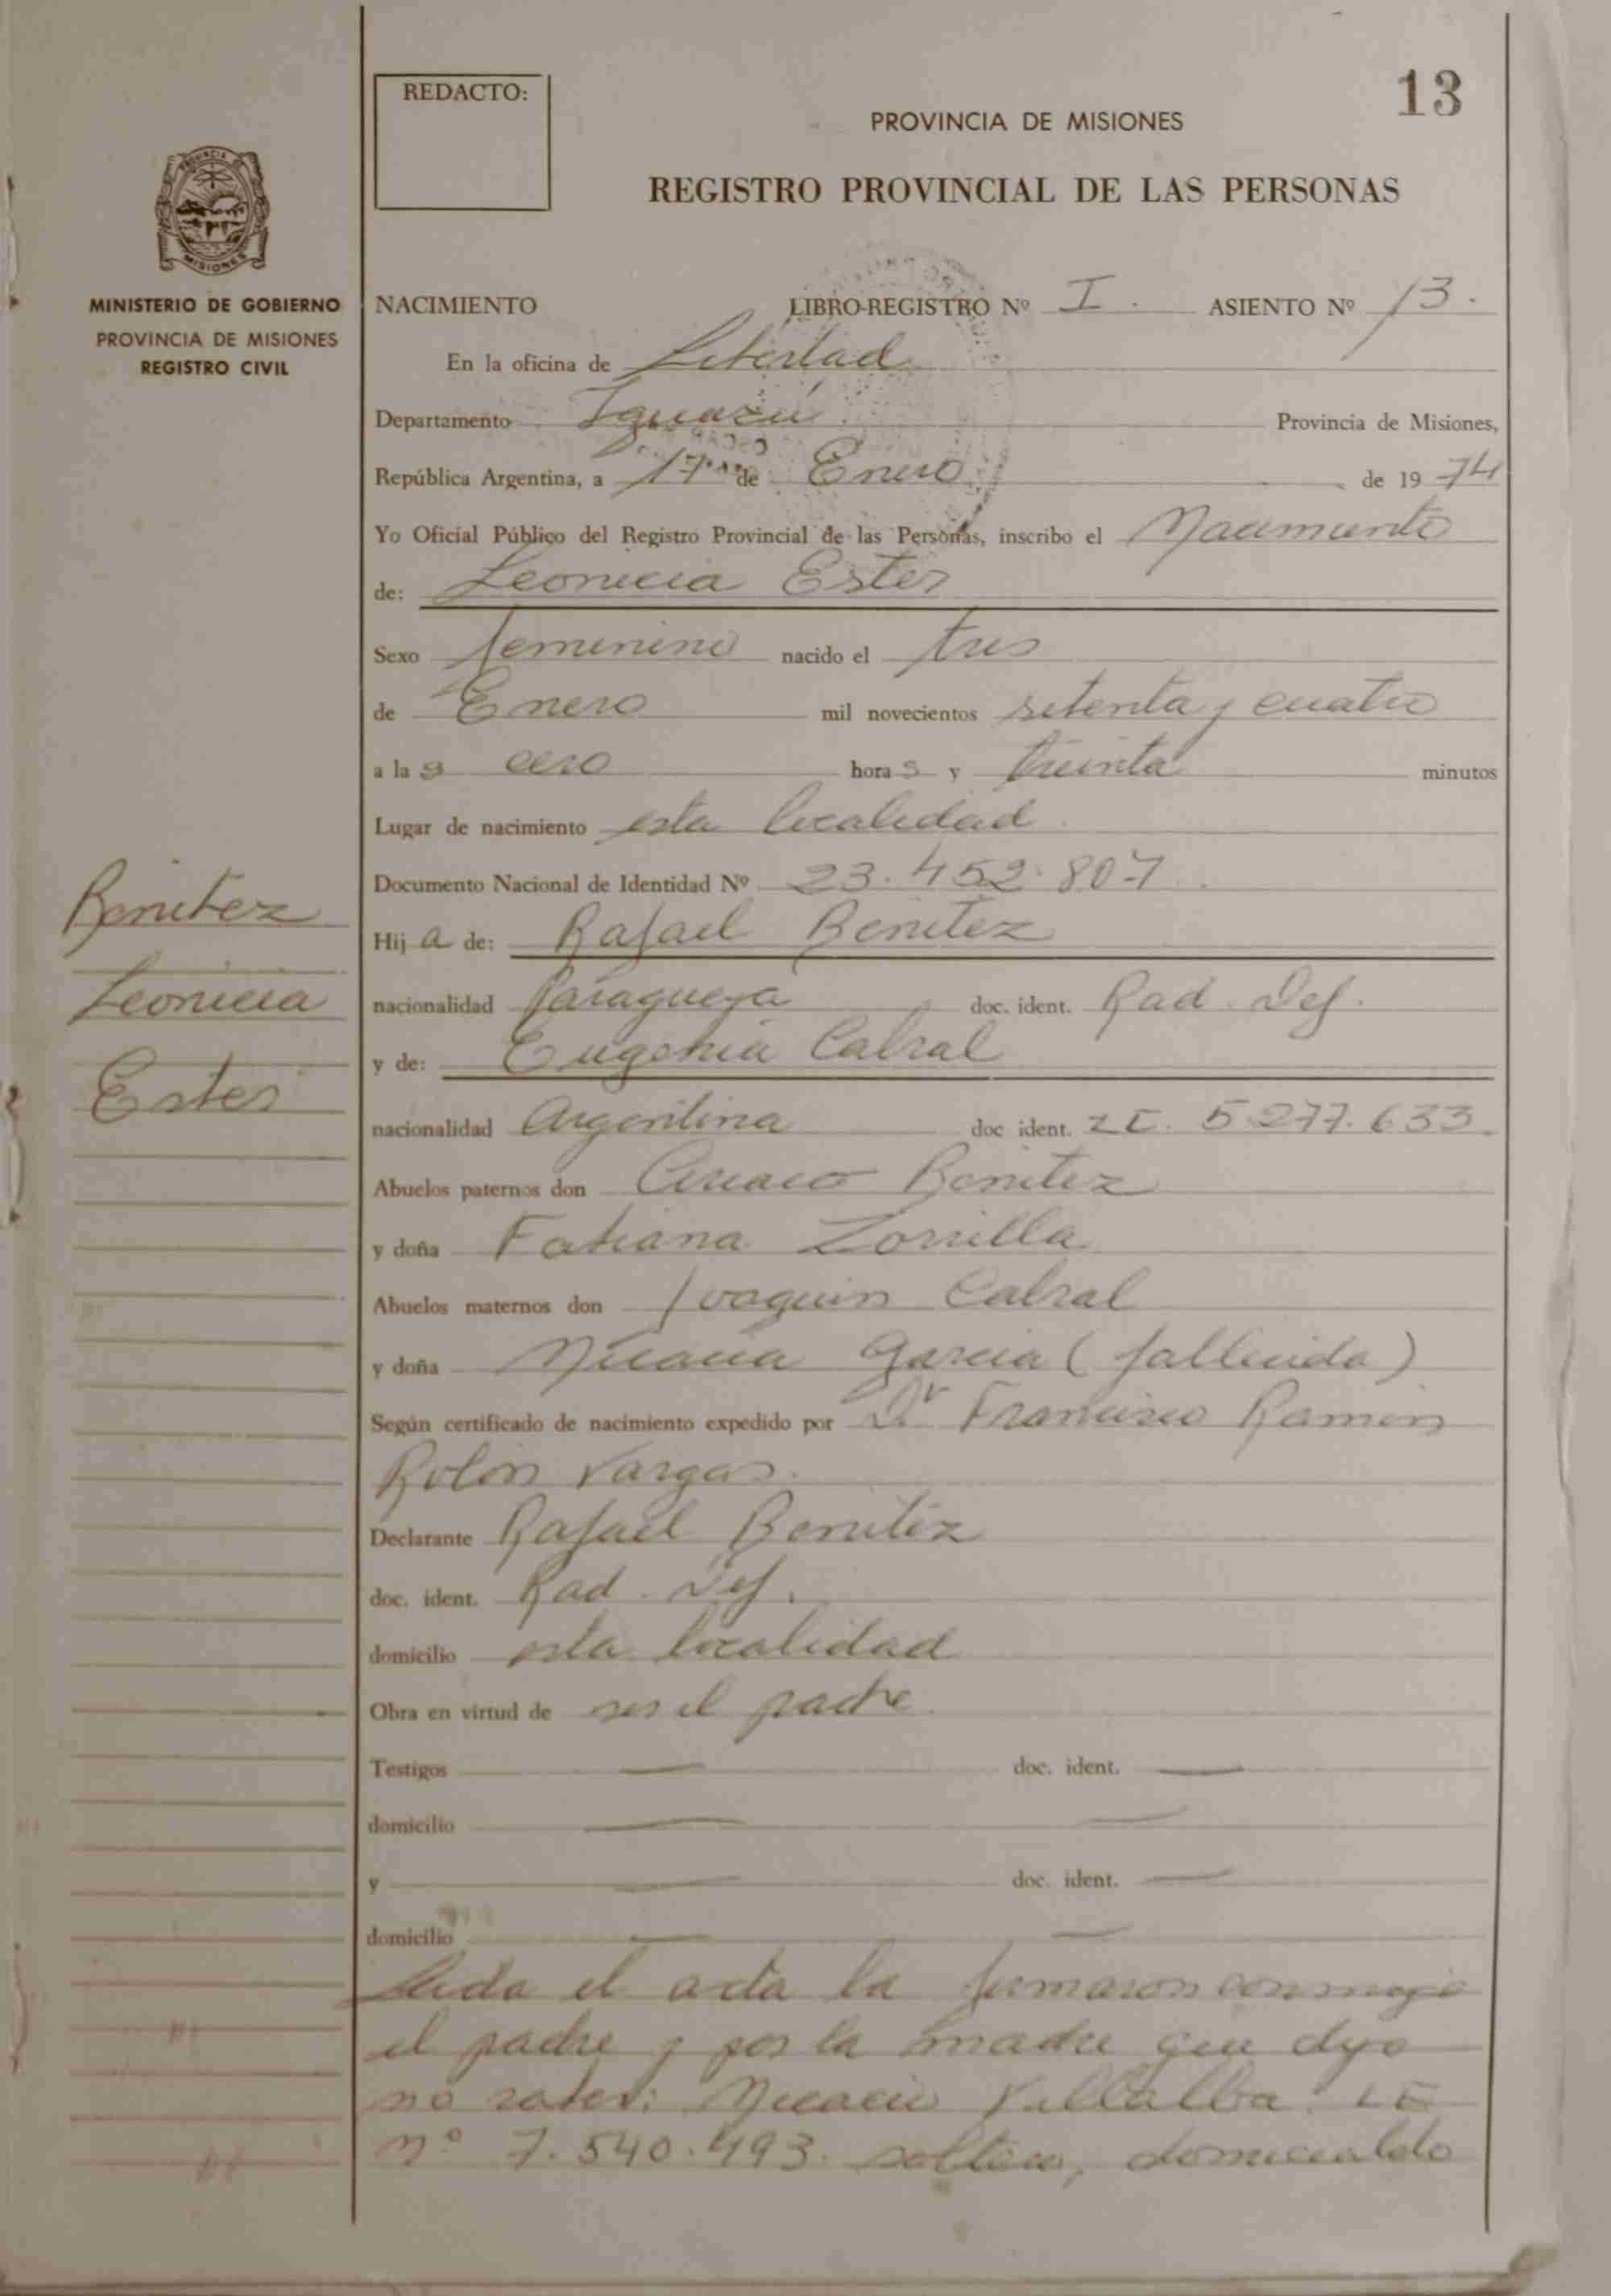 13
REDACTO:
PROVINCIA DE MISIONES
REGISTRO PROVINCIAL DE LAS PERSONAS
PROVINCIA DE
MISIONES
MINISTERIO DE GOBIERNO
PROVINCIA DE MISIONES
REGISTRO CIVIL
NACIMIENTO LIBRO-REGISTRO Nº I. ASIENTO Nº 13.
En la oficina de Libertad
Departamento Iguazú Provincia de Misiones,
República Argentina, a 17 de Enero de 1974
Yo Oficial Público del Registro Provincial de las Personas, inscribo el Nacimiento
de: Leonicia Ester
Sexo femenino nacido el tres
de Enero mil novecientos setenta y cuatro
a las cero horas y treinta minutos
Lugar de nacimiento esta localidad
Documento Nacional de Identidad Nº 23.452.807.
Benitez
Leonicia
Ester
Hija de: Rafael Benitez
nacionalidad Paraguaya doc. ident. Rad. Def.
y de: Eugenia Cabral
nacionalidad Argentina doc ident. 5.277.633
Abuelos paternos don Ciriaco Benitez
y doña Fabiana Zorrilla
Abuelos maternos don Joaquin Cabral
y doña Garcia (fallecida)
Según certificado de nacimiento expedido por Dr Francisco Ramon
Rolon Vargas.
Declarante Rafael Benitez
doc. ident. Rad. Def.
domicilio esta localidad
Obra en virtud de ser el padre
Testigos — doc. ident. —
domicilio — —
y — doc. ident. —
domicilio — —
Leida el acta la firmaron conmigo
el padre y por la madre que dijo
no saber: Villalba LE
nº 7.540.493. soltero, domiciliado